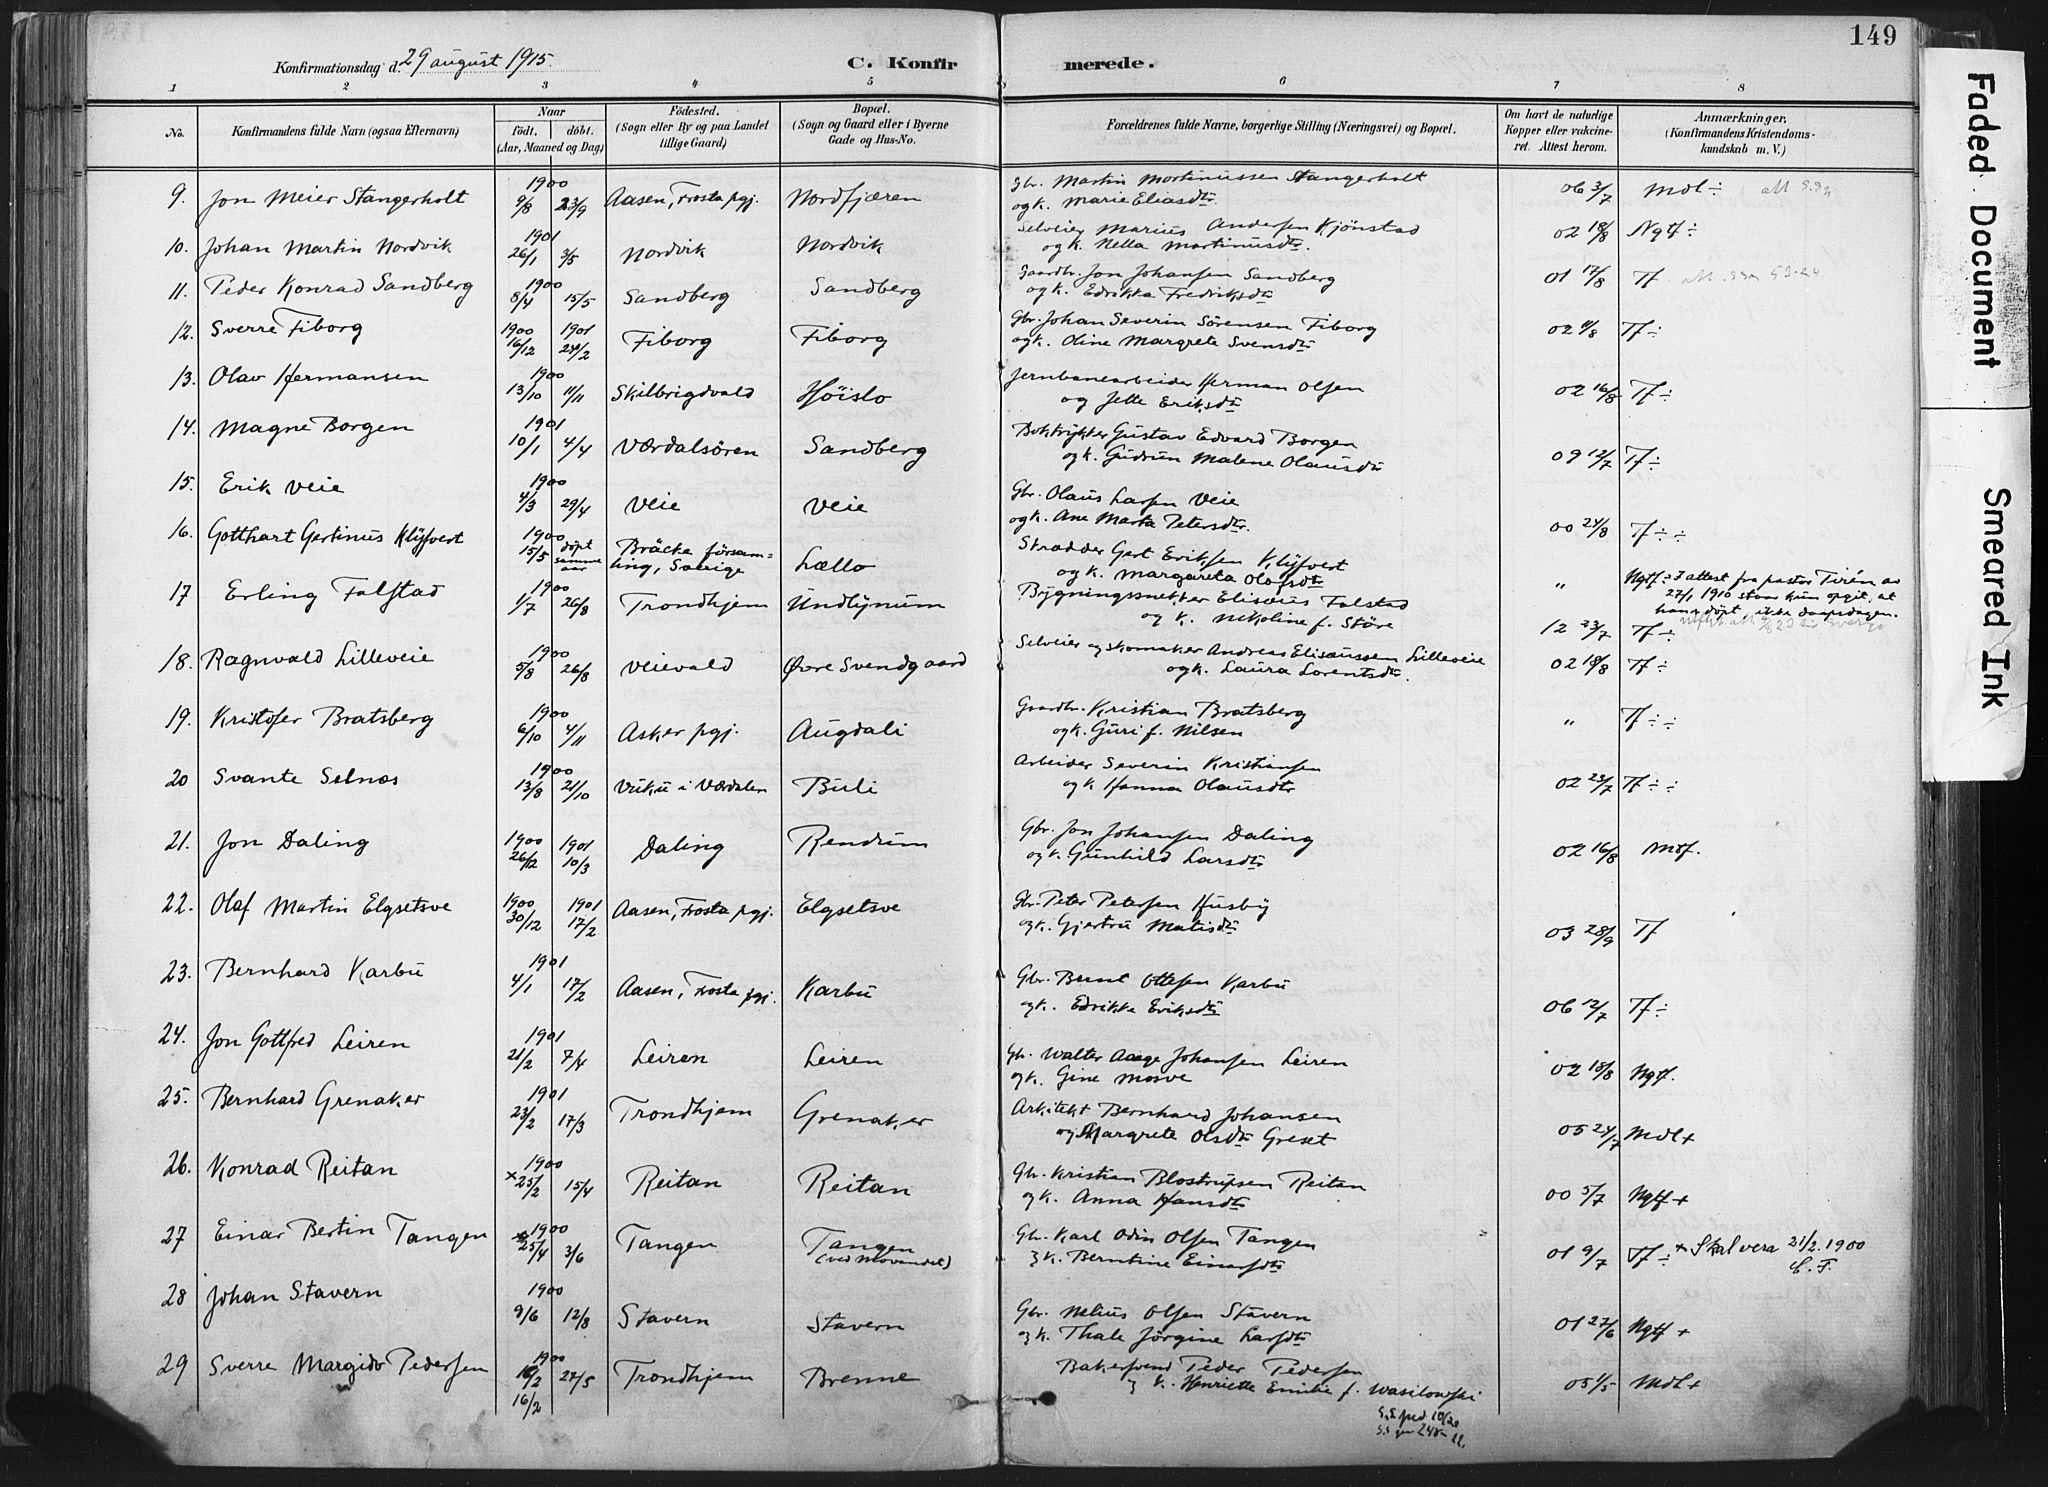 149
Konfirmationsdag d. 29 august 1915.
C. Konfirmerede.
1 2 3 4 5 6 7 8
No. Konfirmandens fulde Navn (ogsaa Efternavn) Naar født. døbt. (Aar, Maaned og Dag) Fødested. (Sogn eller By og paa Landet tillige Gaard) Bopæl. (Sogn og Gaard eller i Byerne Gade og Hus-No. Forældrenes fulde Navne, borgerlige Stilling (Næringsvei) og Bopæl. Om havt de naturlige Kopper eller vaccineret. Attest herom. Anmærkninger. (Konfirmandens Kristendomskundskab m. V.)
9. Jon Meier Stangerholt 1900 9/8 23/9 Aasen, Frosta pgj. Nordfjæren Gbr. Martin Mortinussen Stangerholt 06 3/7 Mdl ÷
og k. Marie Eliasdtr.
10. Johan Martin Nordvik 1901 26/1 3/5 Nordvik Nordvik Selveier Marius Andersen Kjønstad 02 18/8 Ngtf ÷
og k. Nella Martinusdtr.
11. Peder Konrad Sandberg 1900 8/4 15/5 Sandberg Sandberg Gaardbr. Jon Johansen Sandberg 01 17/8 Tf
og k. Edrikka Fredriksdtr
12. Sverre Fiborg 1900 16/12 1901 24/2 Fiborg Fiborg Gbr. Johan Severin Sørensen Fiborg 02 11/8 Tf ÷
og k. Oline Margrete Svensdtr
13. Olav Hermansen 1900 13/10 11/11 Skilbrigdvald Høislo Jernbanearbeider Herman Olsen 02 16/8 Tf ÷
og Jette Eriksdtr
14. Magne Borgen 1901 10/1 4/4 Værdalsøren Sandberg Boktrykker Gustav Edvard Borgen 09 12/7 Tf ÷
og k. Gudrun Malene Olausdtr
15. Erik Veie 1900 4/3 29/4 Veie Veie Gbr. Olaus Larsen Veie 00 24/8 Tf ÷ ÷
og k. Ane Marta Petersdtr.
16. Gotthart Gertinus Klyfvert 1900 15/5 døpt samme aar Bräcke församling, Sverige Lello Skrædder Gert Eriksen Klyfvert " Ngtf ÷ I attest fra pastor Tirén av 27/1 1910 staar kun opgit, at han er døpt, ikke daapsdagen.
og k. Margareta Olofsdtr
17 Erling Falstad 1900 1/7 26/8 Trondhjem Undlynum Bygningssnekker Elisæus Falstad 12 23/7 Tf ÷
og k. Nikoline f. Støre
18. Ragnvald Lilleveie 1900 5/8 26/8 Veievald Øvre Svendgaard Selveier og skomaker Andreas Elisæussen Lilleveie 02 18/8 Tf ÷
og k. Laura Lorentsdtr.
19. Kristofer Bratsberg 1900 6/10 4/11 Asker pgj. Augdali Gaardbr. Kristian Bratsberg " Tf ÷ ÷
og k. Guri f. Nilsen
20 Svante Selnæs 1900 13/8 21/10 Vuku i Værdalen Buli Arbeider Severin Kristiansen 02 23/7 Tf ÷ ÷
og k Hanna Olausdtr
21. Jon Daling 1900 26/12 1901 10/3 Daling Rendum Gbr. Jon Johansen Daling 02 16/8 Mdf.
og k. Gunhild Larsdtr
22. Olaf Martin Elgsetsve 1900 30/12 1901 17/2 Aasen, Frosta pgj. Elgsetsve Gbr. Peter Petersen Husby 03 28/9 Tf
og k. Gjertru Matisdtr
23. Bernhard Karbu 1901 4/1 17/2 Aasen, Frosta pgj. Karbu Gbr. Bernt Ottesen Karbu 06 12/7 Tf ÷
og k. Edrikke Eriksdtr
24. Jon Gottfred Leiren 1901 21/2 7/4 Leiren Leiren Gbr. Walter Aage Johansen Leiren 02 15/8 Ngtf.
og k. Gine Mosve
25. Bernhard Grenaker 1901 23/2 17/3 Trondhjem Grenaker Arkitekt Bernhard Johansen 05 24/7 Mdl +
og Margrete Olsdtr Greset
26. Konrad Reitan 1900 × 25/2 15/4 Reitan Reitan Gbr. Kristian Blostrupsen Reitan 00 5/7 Ngtf +
og k. Anna Hansdtr
27 Einar Bertin Tangen 1900 25/4 3/6 Tangen Tangen (ved Movandet) Gbr. Karl Odin Olsen Tangen 01 9/7 Tf ÷ × Skal vera 21/2. 1900
& k. Berntine Einarsdtr E. F.
28 Johan Stavern 1900 9/6 12/8 Stavern Stavern Gbr. Nelius Olsen Stavern 01 27/6 Ngtf +
& k. Thale Jørgine Larsdtr
29 Sverre Margido Pedersen 1900 16/2 27/5 Trondhjem Brenne Bakersvend Peder Pedersen 05 1/5 Mdl +
16/2 & k. Henriette Emilie f. Wasilowski
Faded Document
Smeared Ink